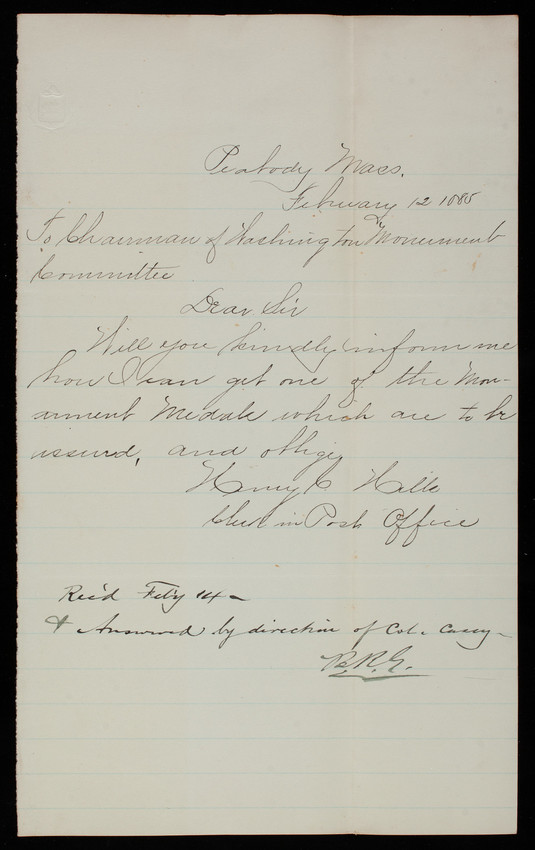 Peabody Mass.
February 12 1885
To Chairman of Washington Monument
Committee
Dear Sir
Will you kindly inform me
how I can get one of the Mon-
ument Medals which are to be
issued, and oblige
Henry C Hills
Clerk in Post Office
Rec'd Feb'y 14 -
& Answered by direction of Col. Casey -
B.R.G.